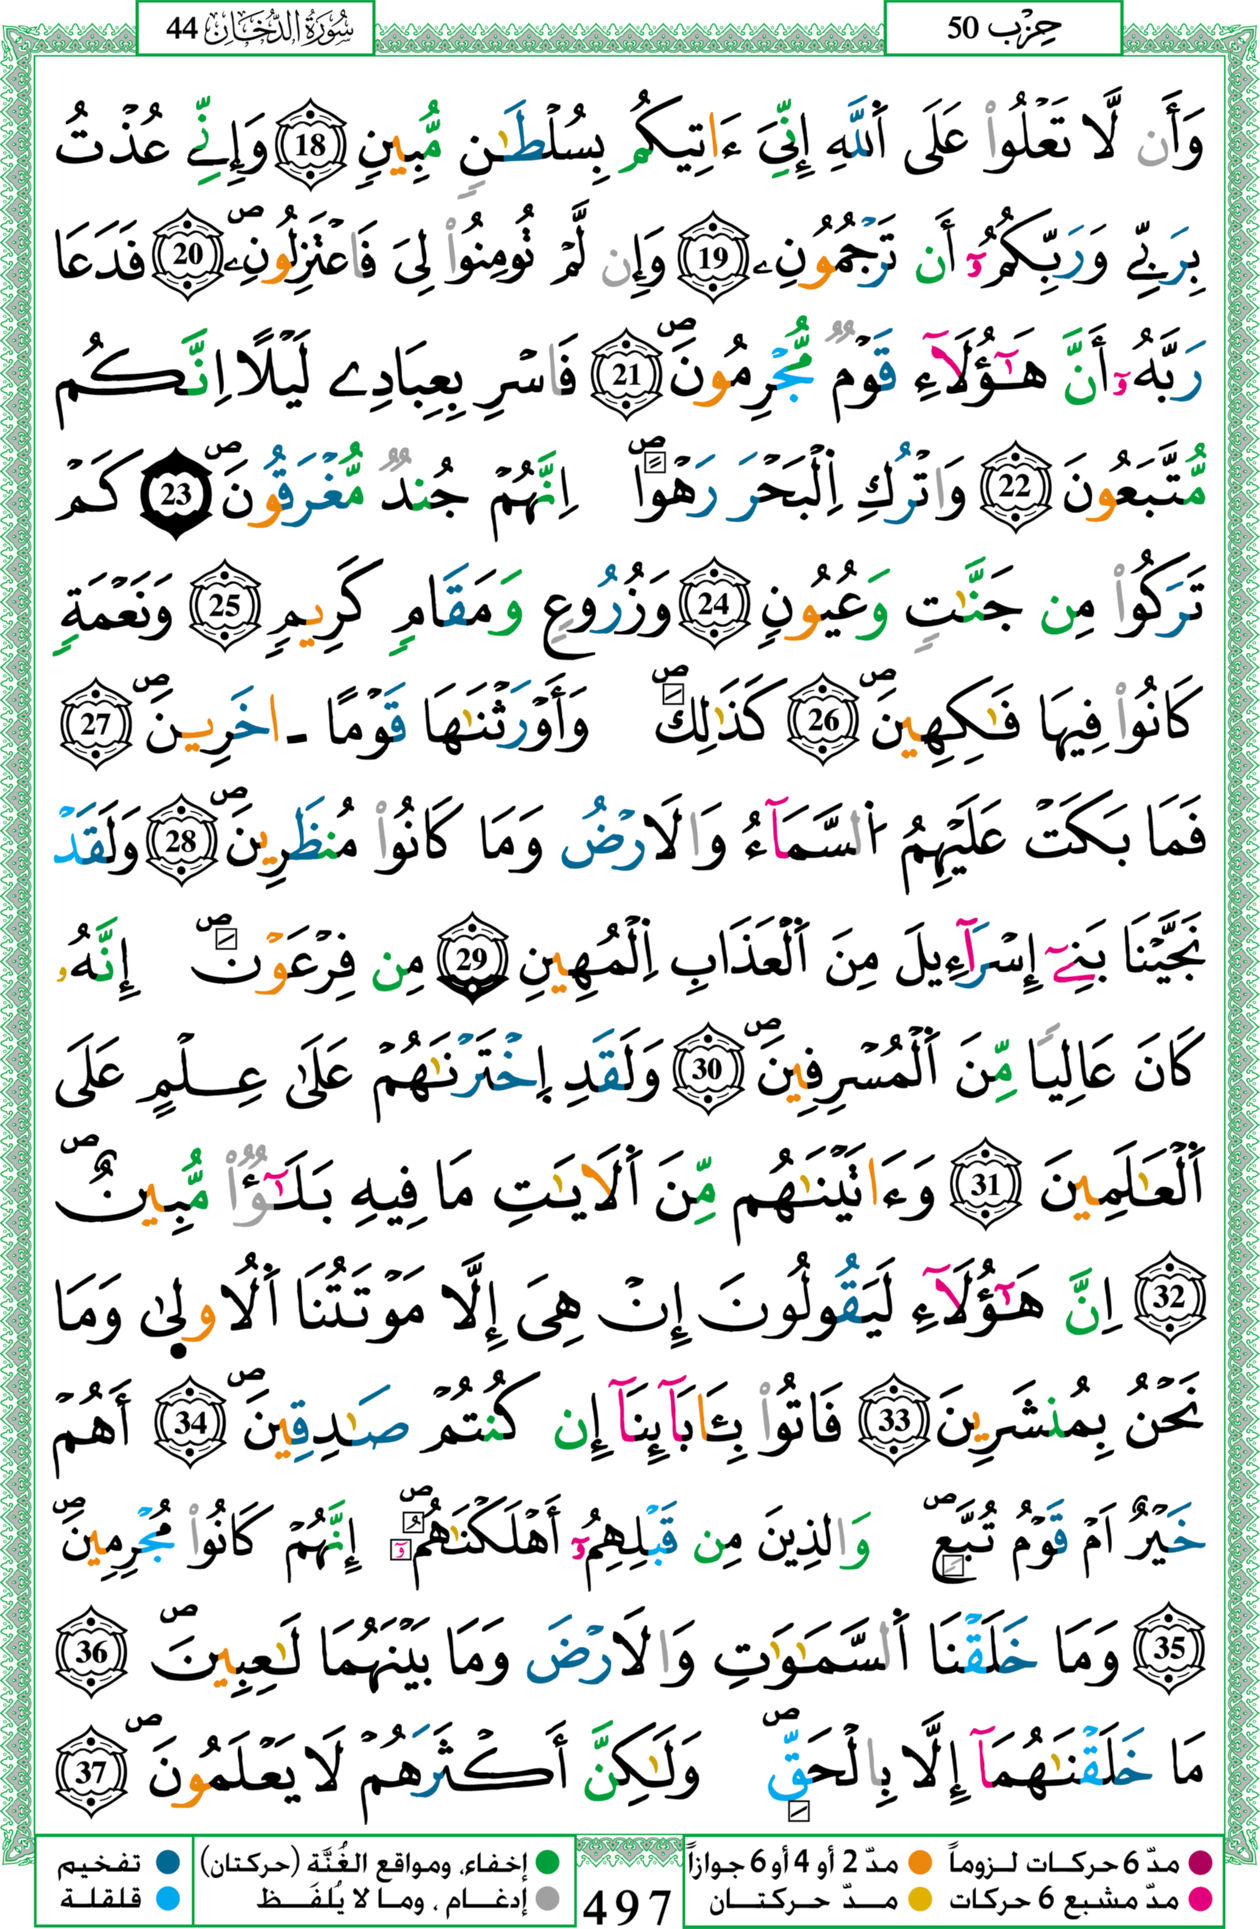 حِزْب 50
سُورَةُ الدُّخَان 44
وَأَن لَّا تَعْلُواْ عَلَى اَ۬للَّهِ إِنِّيَ ءَاتِيكُم بِسُلْطَٰنٖ مُّبِينٖ 18 وَإِنِّے عُذْتُ
بِرَبِّے وَرَبِّكُمُۥٓ أَن تَرْجُمُونِۦ 19 وَإِن لَّمْ تُومِنُواْ لِيَ فَاعْتَزِلُونِۦ 20 فَدَعَا
رَبَّهُۥٓ أَنَّ هَٰٓؤُلَآءِ قَوْمٞ مُّجْرِمُونَ 21 فَاسْرِ بِعِبَادِے لَيْلًا اِنَّكُم
مُّتَّبَعُونَ 22 وَاتْرُكِ اِ۬لْبَحْرَ رَهْواً اِنَّهُمْ جُندٞ مُّغْرَقُونَ 23 كَمْ
تَرَكُواْ مِن جَنَّٰتٖ وَعُيُونٖ 24 وَزُرُوعٖ وَمَقَامٖ كَرِيمٖ 25 وَنَعْمَةٖ
كَانُواْ فِيهَا فَٰكِهِينَ 26 كَذَٰلِكَ وَأَوْرَثْنَٰهَا قَوْماً ـ اخَرِينَ 27
فَمَا بَكَتْ عَلَيْهِمُ اُ۬لسَّمَآءُ وَالَارْضُ وَمَا كَانُواْ مُنظَرِينَ 28 وَلَقَدْ
نَجَّيْنَا بَنِےٓ إِسْرَآءِيلَ مِنَ اَ۬لْعَذَابِ اِ۬لْمُهِينِ 29 مِن فِرْعَوْنَ إِنَّهُۥ
كَانَ عَالِياٗ مِّنَ اَ۬لْمُسْرِفِينَ 30 وَلَقَدِ إِخْتَرْنَٰهُمْ عَلَىٰ عِلْمٍ عَلَى
اَ۬لْعَٰلَمِينَ 31 وَءَاتَيْنَٰهُم مِّنَ اَ۬لَايَٰتِ مَا فِيهِ بَلَٰٓؤٞاْ مُّبِينٌ
32 اِنَّ هَٰٓؤُلَآءِ لَيَقُولُونَ إِنْ هِيَ إِلَّا مَوْتَتُنَا اَ۬لُاولۭيٰ وَمَا
نَحْنُ بِمُنشَرِينَ 33 فَاتُواْ بِـَٔابَآئِنَآ إِن كُنتُمْ صَٰدِقِينَ 34 أَهُمْ
خَيْرٌ اَمْ قَوْمُ تُبَّعٖ وَالذِينَ مِن قَبْلِهِمُۥٓ أَهْلَكْنَٰهُمُۥٓ إِنَّهُمْ كَانُواْ مُجْرِمِينَ
35 وَمَا خَلَقْنَا اَ۬لسَّمَٰوَٰتِ وَالَارْضَ وَمَا بَيْنَهُمَا لَٰعِبِينَ 36
مَا خَلَقْنَٰهُمَآ إِلَّا بِالْحَقِّ وَلَٰكِنَّ أَكْثَرَهُمْ لَا يَعْلَمُونَ 37
مدّ 6 حركات لـزوماً مدّ 2 أو 4 أو 6 جوازاً
مدّ مشبع 6 حركات مــدّ حـركتــان
497
إخفاء، ومواقع الغُنَّة (حركتان) تفخيم
إدغـــام ، ومـا لا يُلفَـــظ قلقلة